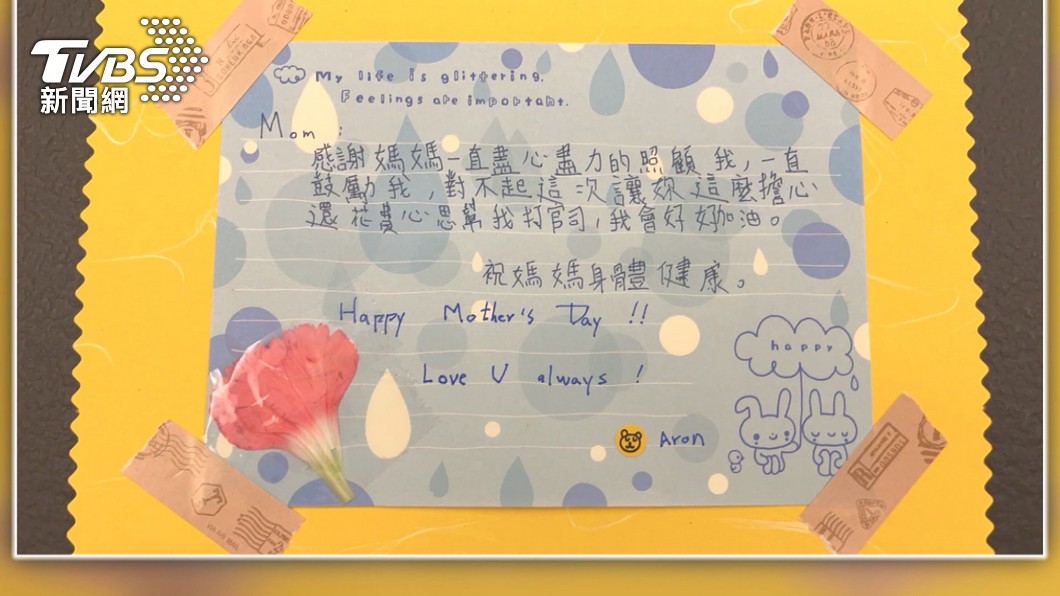 TVBS
新聞網
My life is glittering.
Feelings are important.
Mom :
感謝媽媽一直盡心盡力的照顧我,一直
鼓勵我,對不起這次讓妳這麼擔心
還花費心思幫我打官司,我會好好加油。
祝媽媽身體健康。
Happy Mother's Day !!
Love U always !
happy
Aron